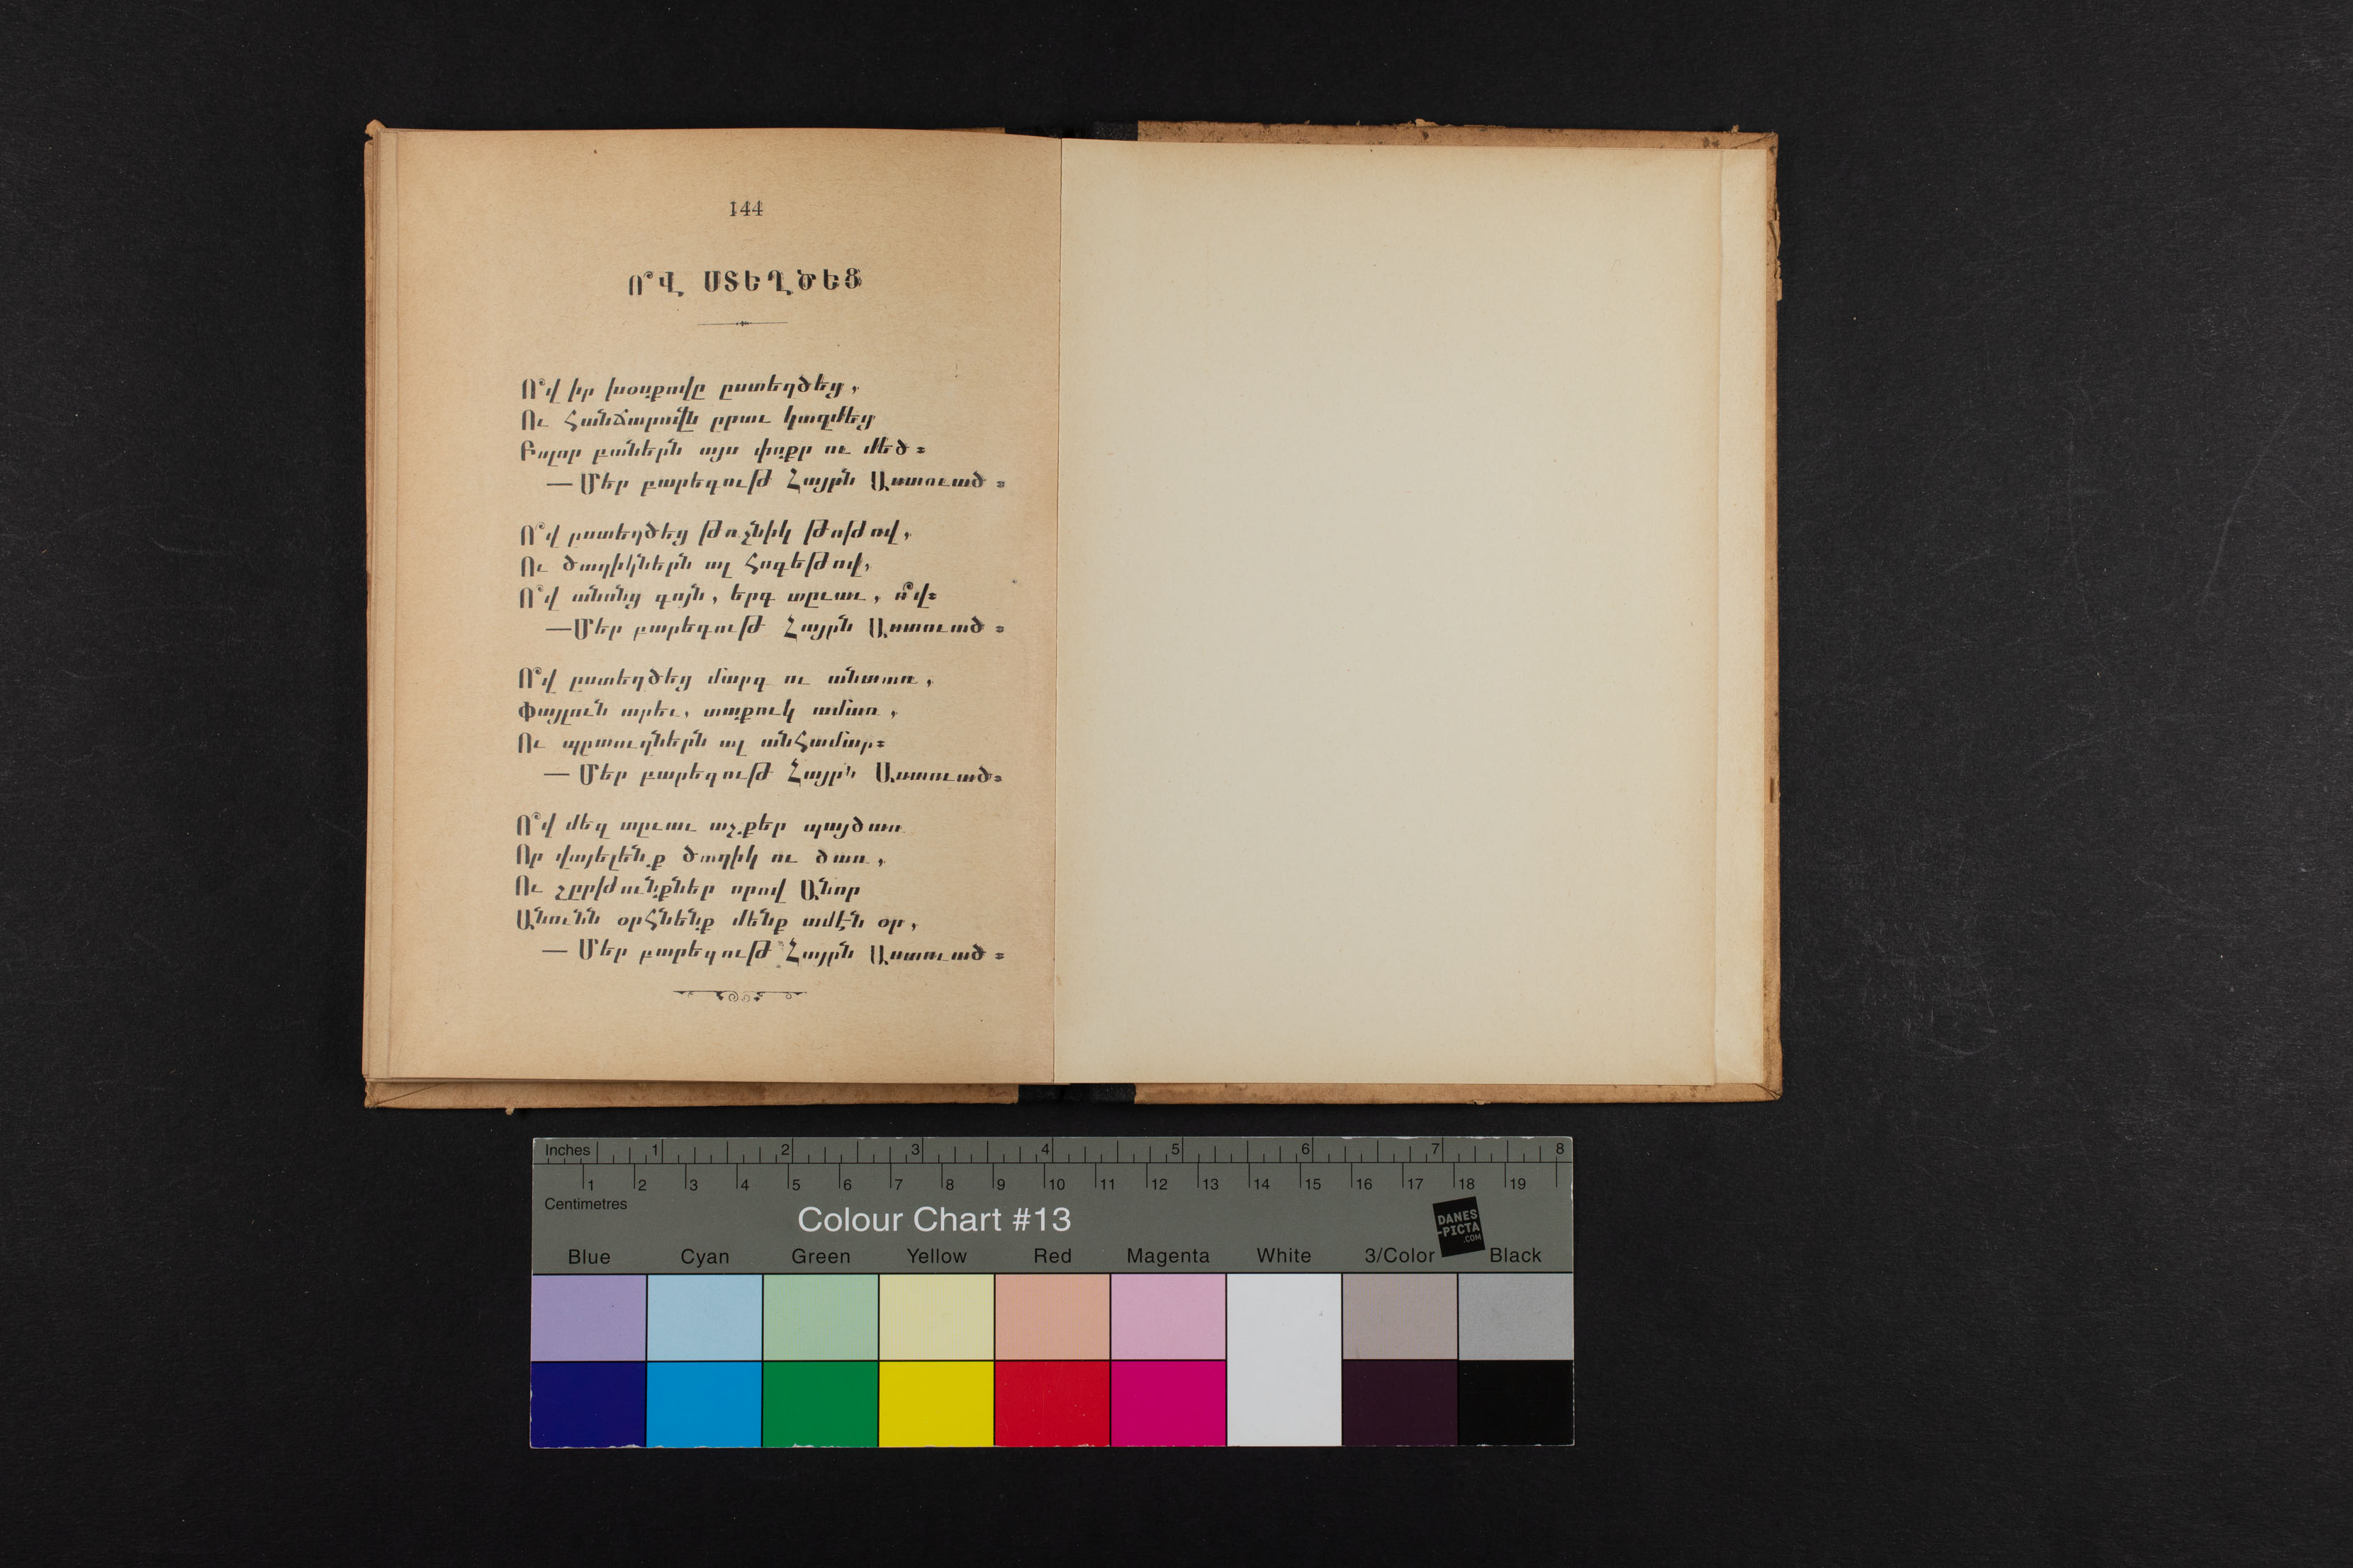 144
Ո՞Վ ՍՏԵՂԾԵՑ
Ո՞վ իր խօսքովը ըստեղծեց,
Ու հանճարովն ըրաւ կազմեց
Բոլոր բաներն այս փոքր ու մեծ։
— Մեր բարեգութ Հայրն Աստուած։
Ո՞վ ըստեղծեց թռչնիկ թոժով,
Ու ծաղիկներն ալ հոգեթով,
Ո՞վ անոնց գոյն, երգ արւաւ, ո՞վ։
—Մեր բարեգութ Հայրն Աստուած։
Ո՞վ ըստեղծեց մարգ ու անտառ,
Փայլուն արեւ, տաքուկ ամառ,
Ու պըտուղներն ալ անհամար։
— Մեր բարեգութ Հայրն Աստուած։
Ո՞վ մեզ արւաւ աչքեր պայծառ
Որ վայելենք ծաղիկ ու ծառ,
Ու շըրժունքներ որով Անոր
Անունն օրհնենք մենք ամէն օր,
— Մեր բարեգութ Հայրն Աստուած։
Inches 1 2 3 4 5 6 7 8
1 2 3 4 5 6 7 8 9 10 11 12 13 14 15 16 17 18 19
Centimetres
Colour Chart #13
DANES
-PICTA
.COM
Blue Cyan Green Yellow Red Magenta White 3/Color Black